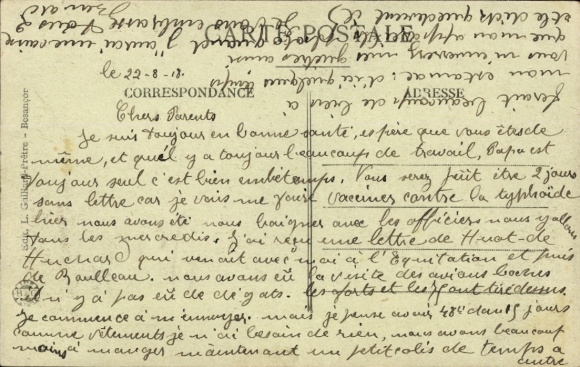 CARTE POSTALE
le 22-8-18.
CORRESPONDANCE
ADRESSE
Chers Parents
Je suis toujours en bonne santé, espère que vous êtes de
même, et qu'il y a toujours beaucoup de travail, Papa est
toujours seul c'est bien embêtant. Vous serez peût être 2 jours
sans lettre car je vais me faire vacciner contre la typhoïde
hier nous avons été nous baigner avec les officiers nous y allons
tous les mercredis. J'ai reçu une lettre de Huot-de
qui venait avec moi à l'Equitation et puis
de Baulleau. nous avons eû la visite des avions boches
il n'y a pas eû de dégats. les forts et les ont tiré dessus.
je commence à m'ennuyer. mais je pense avoir 48h dans 15 jours
comme vêtements je n'ai besoin de rien, nous avons beaucoup
moins à manger maintenant un petit colis de temps à
autre
ferait beaucoup de bien à
mon estomac: d'ici quelques temps
vous m'enverrez mes guêtres ainsi
que mon
Je vous embrasse tous 2
Bernard
Edit. L. Gaillard-Prêtre - Besançon